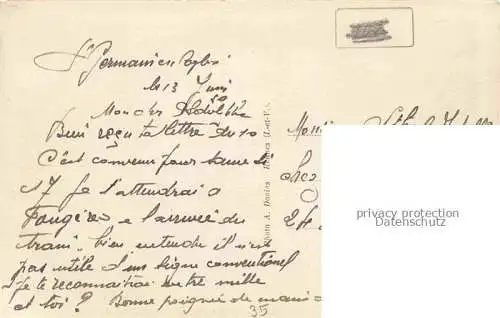 St Germain en Coglès
le 13 Juin
50
Mon cher Adolphe
Bien reçu ta lettre du 10
C'est convenu pour samedi
17 Je t'attendrai a
Fougères a l'arrivée du
train, bien entendu il n'est
pas utile d'un signe conventionel
Je te reconnaitrai entre mille
et toi ? Bonne poignée de main
35
Rennes (I.-et-V.).
Monsieur
Chez
24
privacy protection
Datenschutz